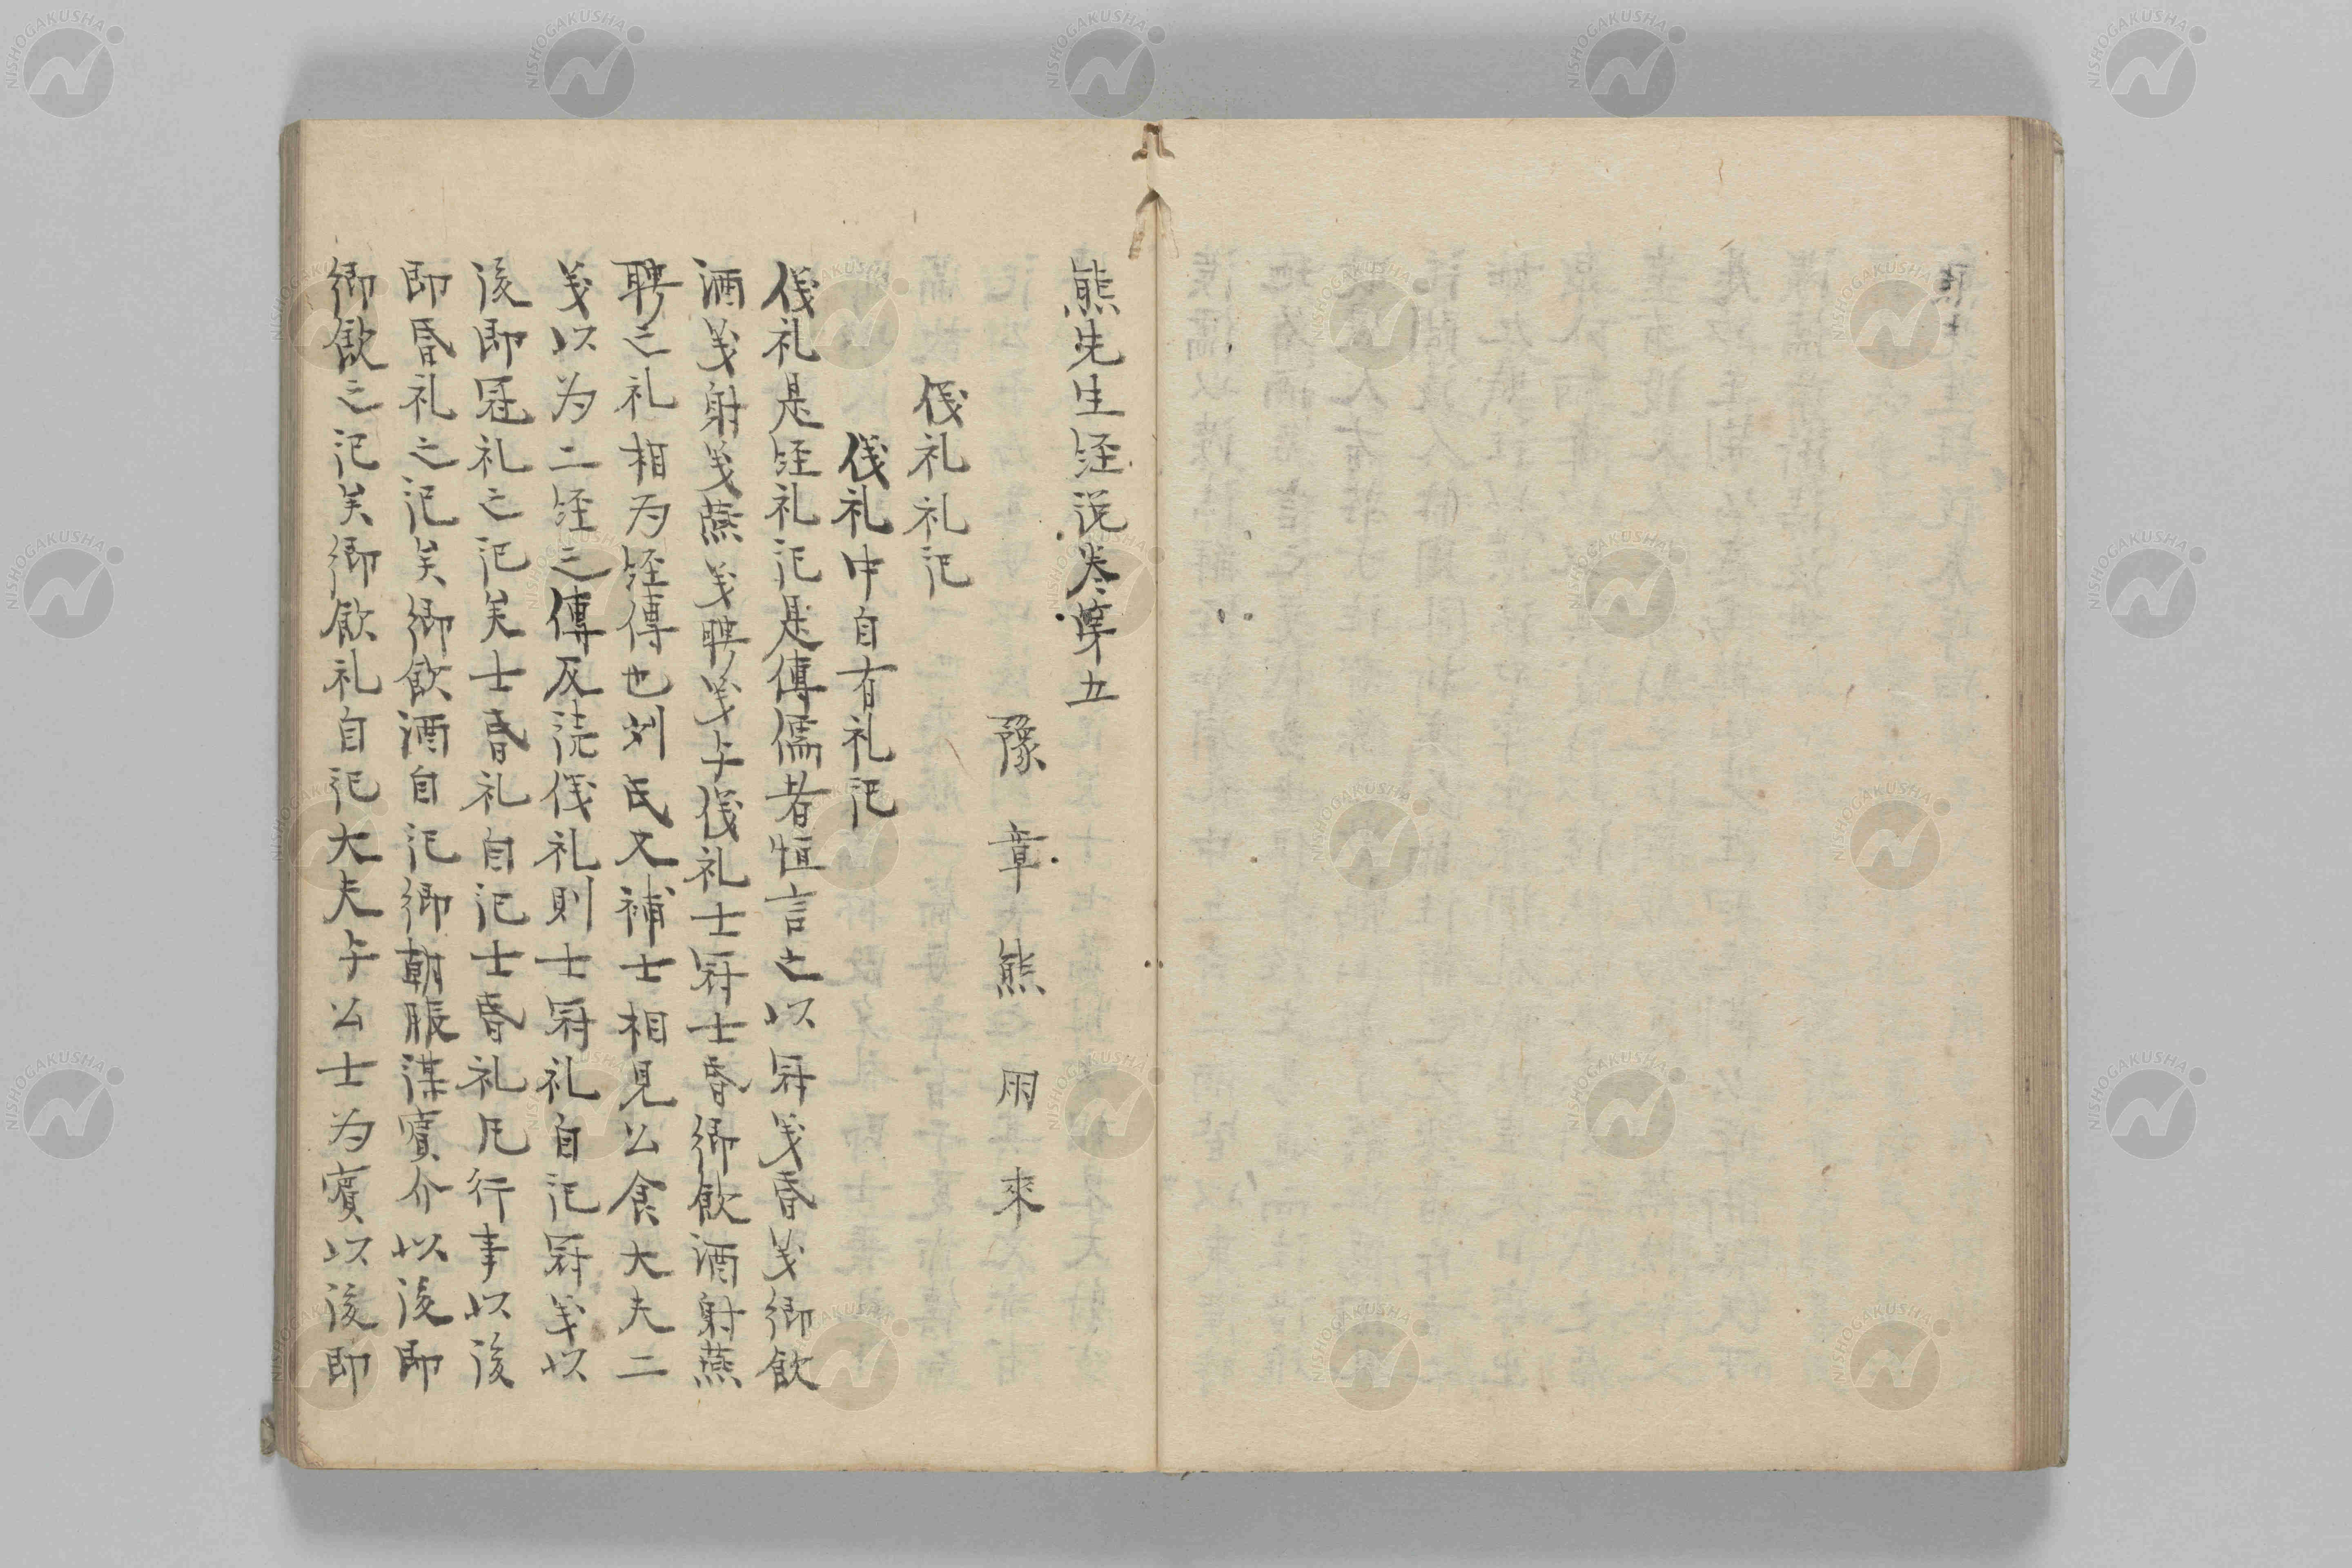 熊先生経説巻第五
豫章熊朋來
儀礼礼記
儀礼中自有礼記
儀礼是経礼記是傳儒者恒言之以冠義昏義郷飲
酒義射義燕義聘義与儀礼士冠士昏郷飲酒射燕
聘之礼相为経傳也刘氏又補士相見公食大夫二
義以为二経之傳及読儀礼則士冠礼自記冠義以
後即冠礼之記矣士昏礼自記士昏礼凡行事以後
即昏礼之記矣郷飲酒自記郷朝服谋賓介以後即
郷飲之記矣郷飲礼自記大夫与公士为賓以後即
NISHOGAKUSHA